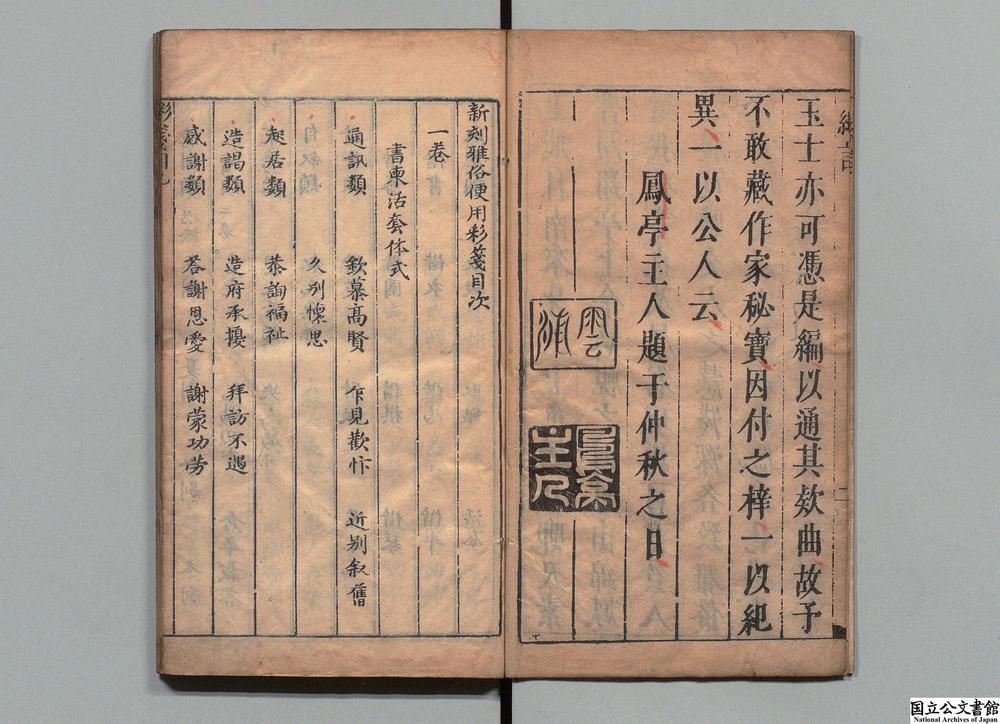 玉士亦可憑是編以通其欵曲故予
不敢藏作家秘寶因付之梓一以紀
異一以公人云
鳳亭主人題于仲秋之日
雲浦
鳳亭主人
新刻雅俗便用彩箋目次
一卷
書柬活套体式
通訊類 欽慕高賢 乍見歡忭 近别叙舊
久别懷思
起居類 恭詢福祉
造謁類 造府承擾 拜訪不遇
感謝類 荅謝恩愛 謝蒙功劳
国立公文書館
National Archives of Japan